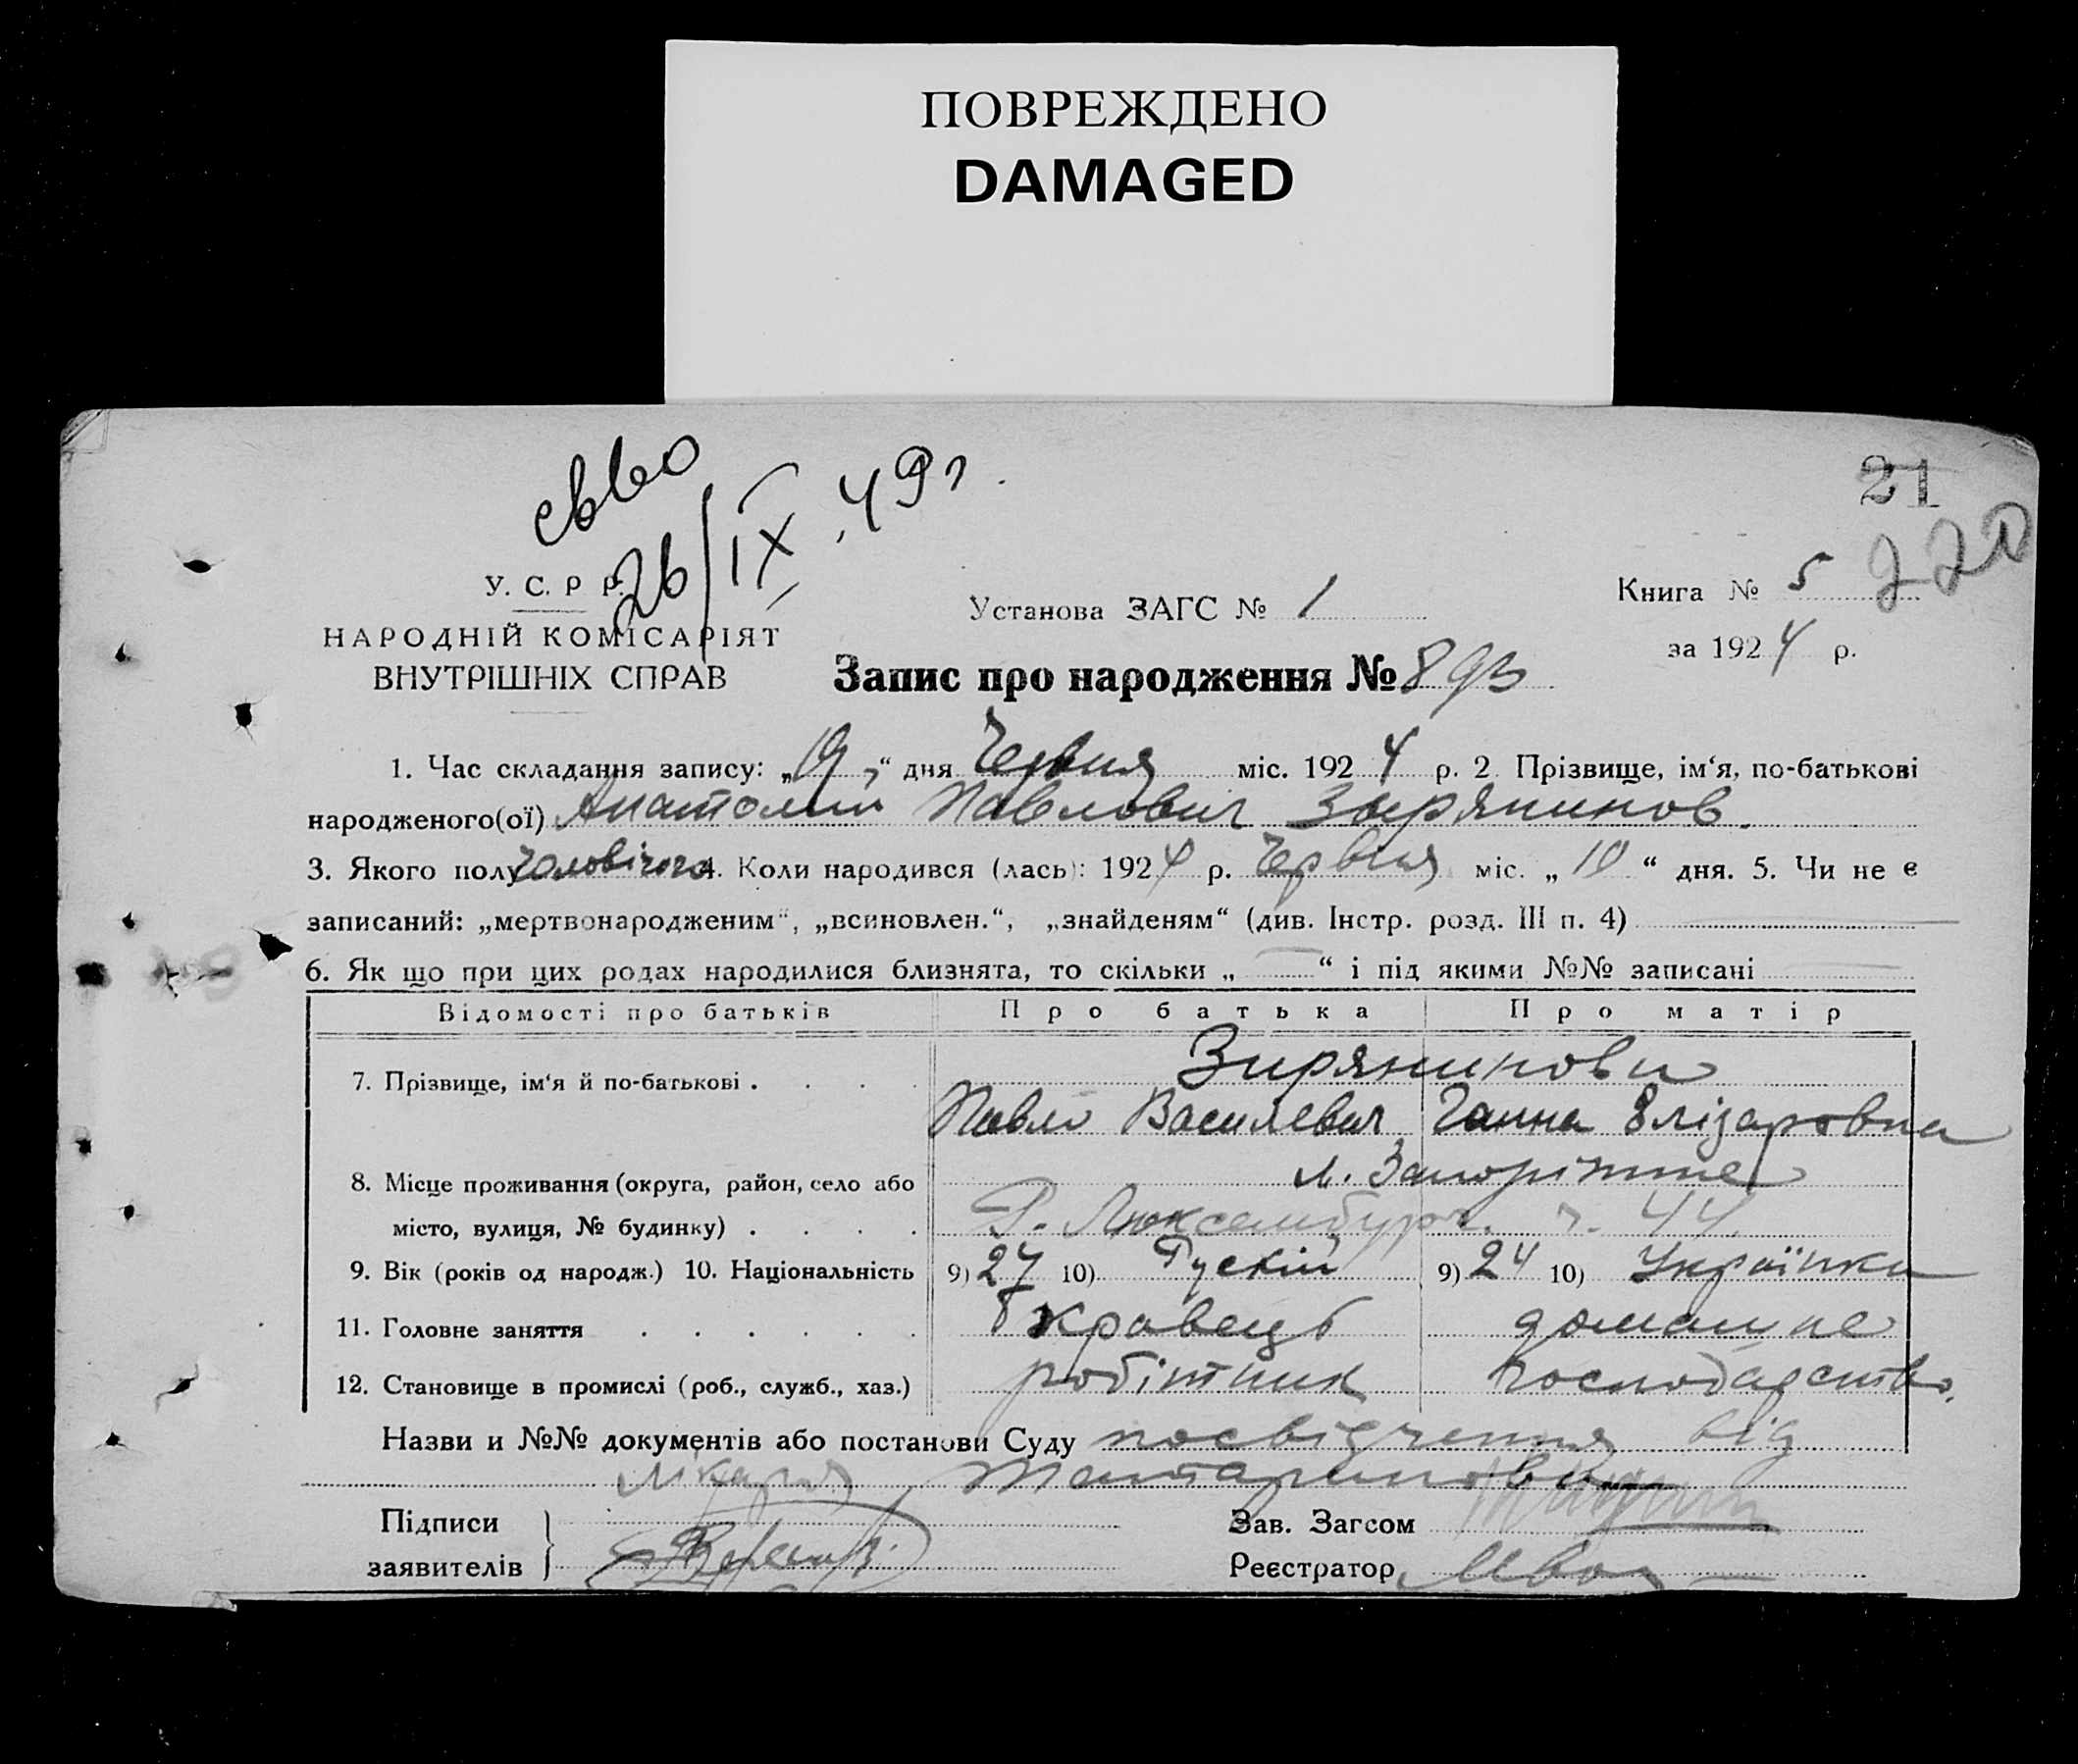 ПОВРЕЖДЕНО
DAMAGED
21
220
26/IX.49г.
У. С. Р Р.
НАРОДНІЙ КОМІСАРІЯТ
ВНУТРІШНІХ СПРАВ
Установа ЗАГС № 1
Книга № 5
за 1924 р.
Запис про народження № 893
1. Час складання запису: „19“ дня Червня міс. 1924 р. 2 Прізвище, ім‘я, по-батькові
народженого(ої) Анатолий Павлович Зырянинов.
3. Якого полу чоловічого 4. Коли народився (лась): 1924 р. Червня міс. „10“ дня. 5. Чи не є
записаний: „мертвонародженим“, „всиновлен.“, „знайденям“ (див. Інстр. розд. III п. 4)
6. Як що при цих родах народилися близнята, то скільки „ “ і під якими №№ записані
Відомості про батьків Про батька Про матір
7. Прізвище, ім‘я й по-батькові . . . . Зирянинови
Павло Василевич Ганна Елізаровна
8. Місце проживання (округа, район, село або м. Запоріжже
місто, вулиця, № будинку) . . . . Р. Люксембург. ч. 44.
9. Вік (років од народж.) 10. Національність 9) 27 10) Руский 9) 24 10) Українка
11. Головне заняття . . . . . . кравець домашне
12. Становище в промислі (роб., служб., хаз.) робітник господарство.
Назви и №№ документів або постанови Суду посвідчення від
лікаря
Підписи
заявителів
Зав. Загсом
Реєстратор